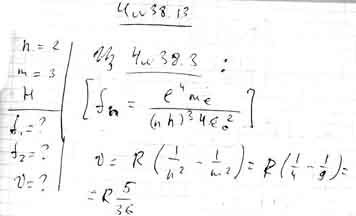 ЧиЗ8.13
n = 2
m = 3
H
f₁ = ?
f₂ = ?
υ = ?
Из Чи38.3 :
[fₙ = e⁴mₑ / (nh)³4ε₀²]
υ = R (1/n² - 1/m²) = R(1/4 - 1/9) =
= R 5/36